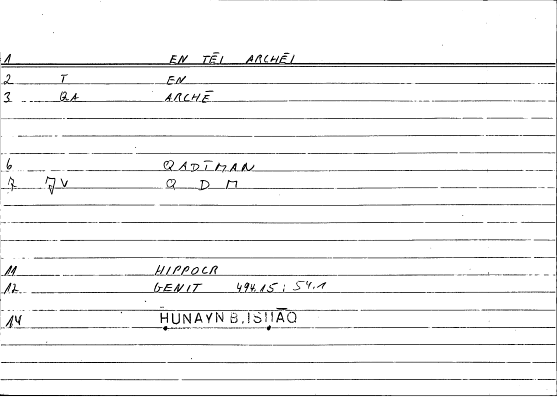 1 EN TĒI ARCHĒI
2 T EN
3 QA ARCHĒ
6 QADĪMAN
7 V Q D M
11 HIPPOCR
12 GENIT 494.15; 54.1
14 ḤUNAYN B. ISḤĀQ